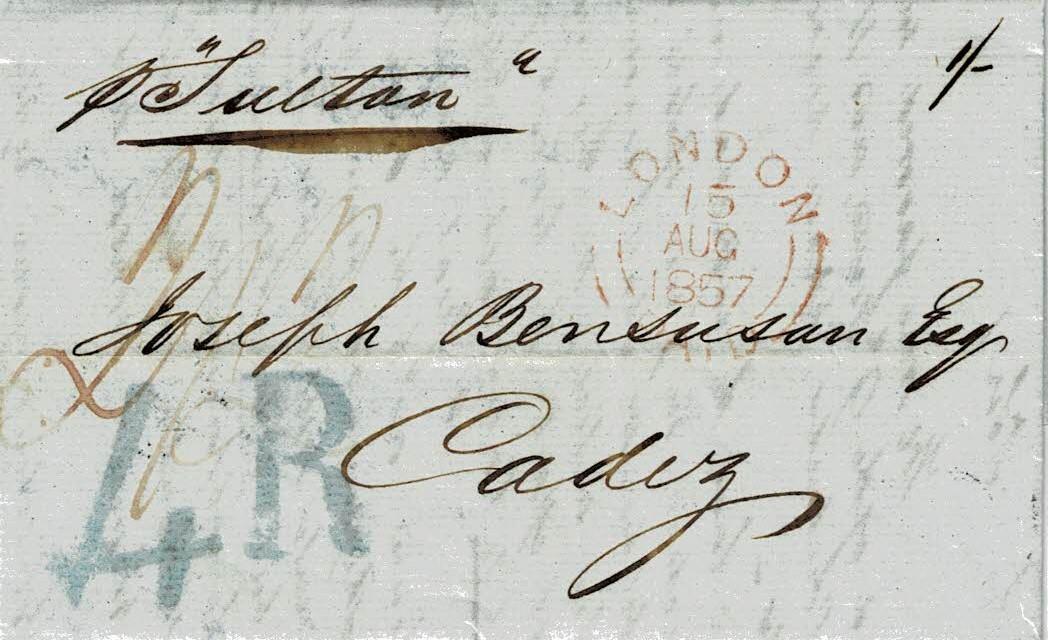 p "Sultan"
1/-
LONDON
15
AUG
1857
PAID
Joseph Bensusan Esq
Cadiz
4R